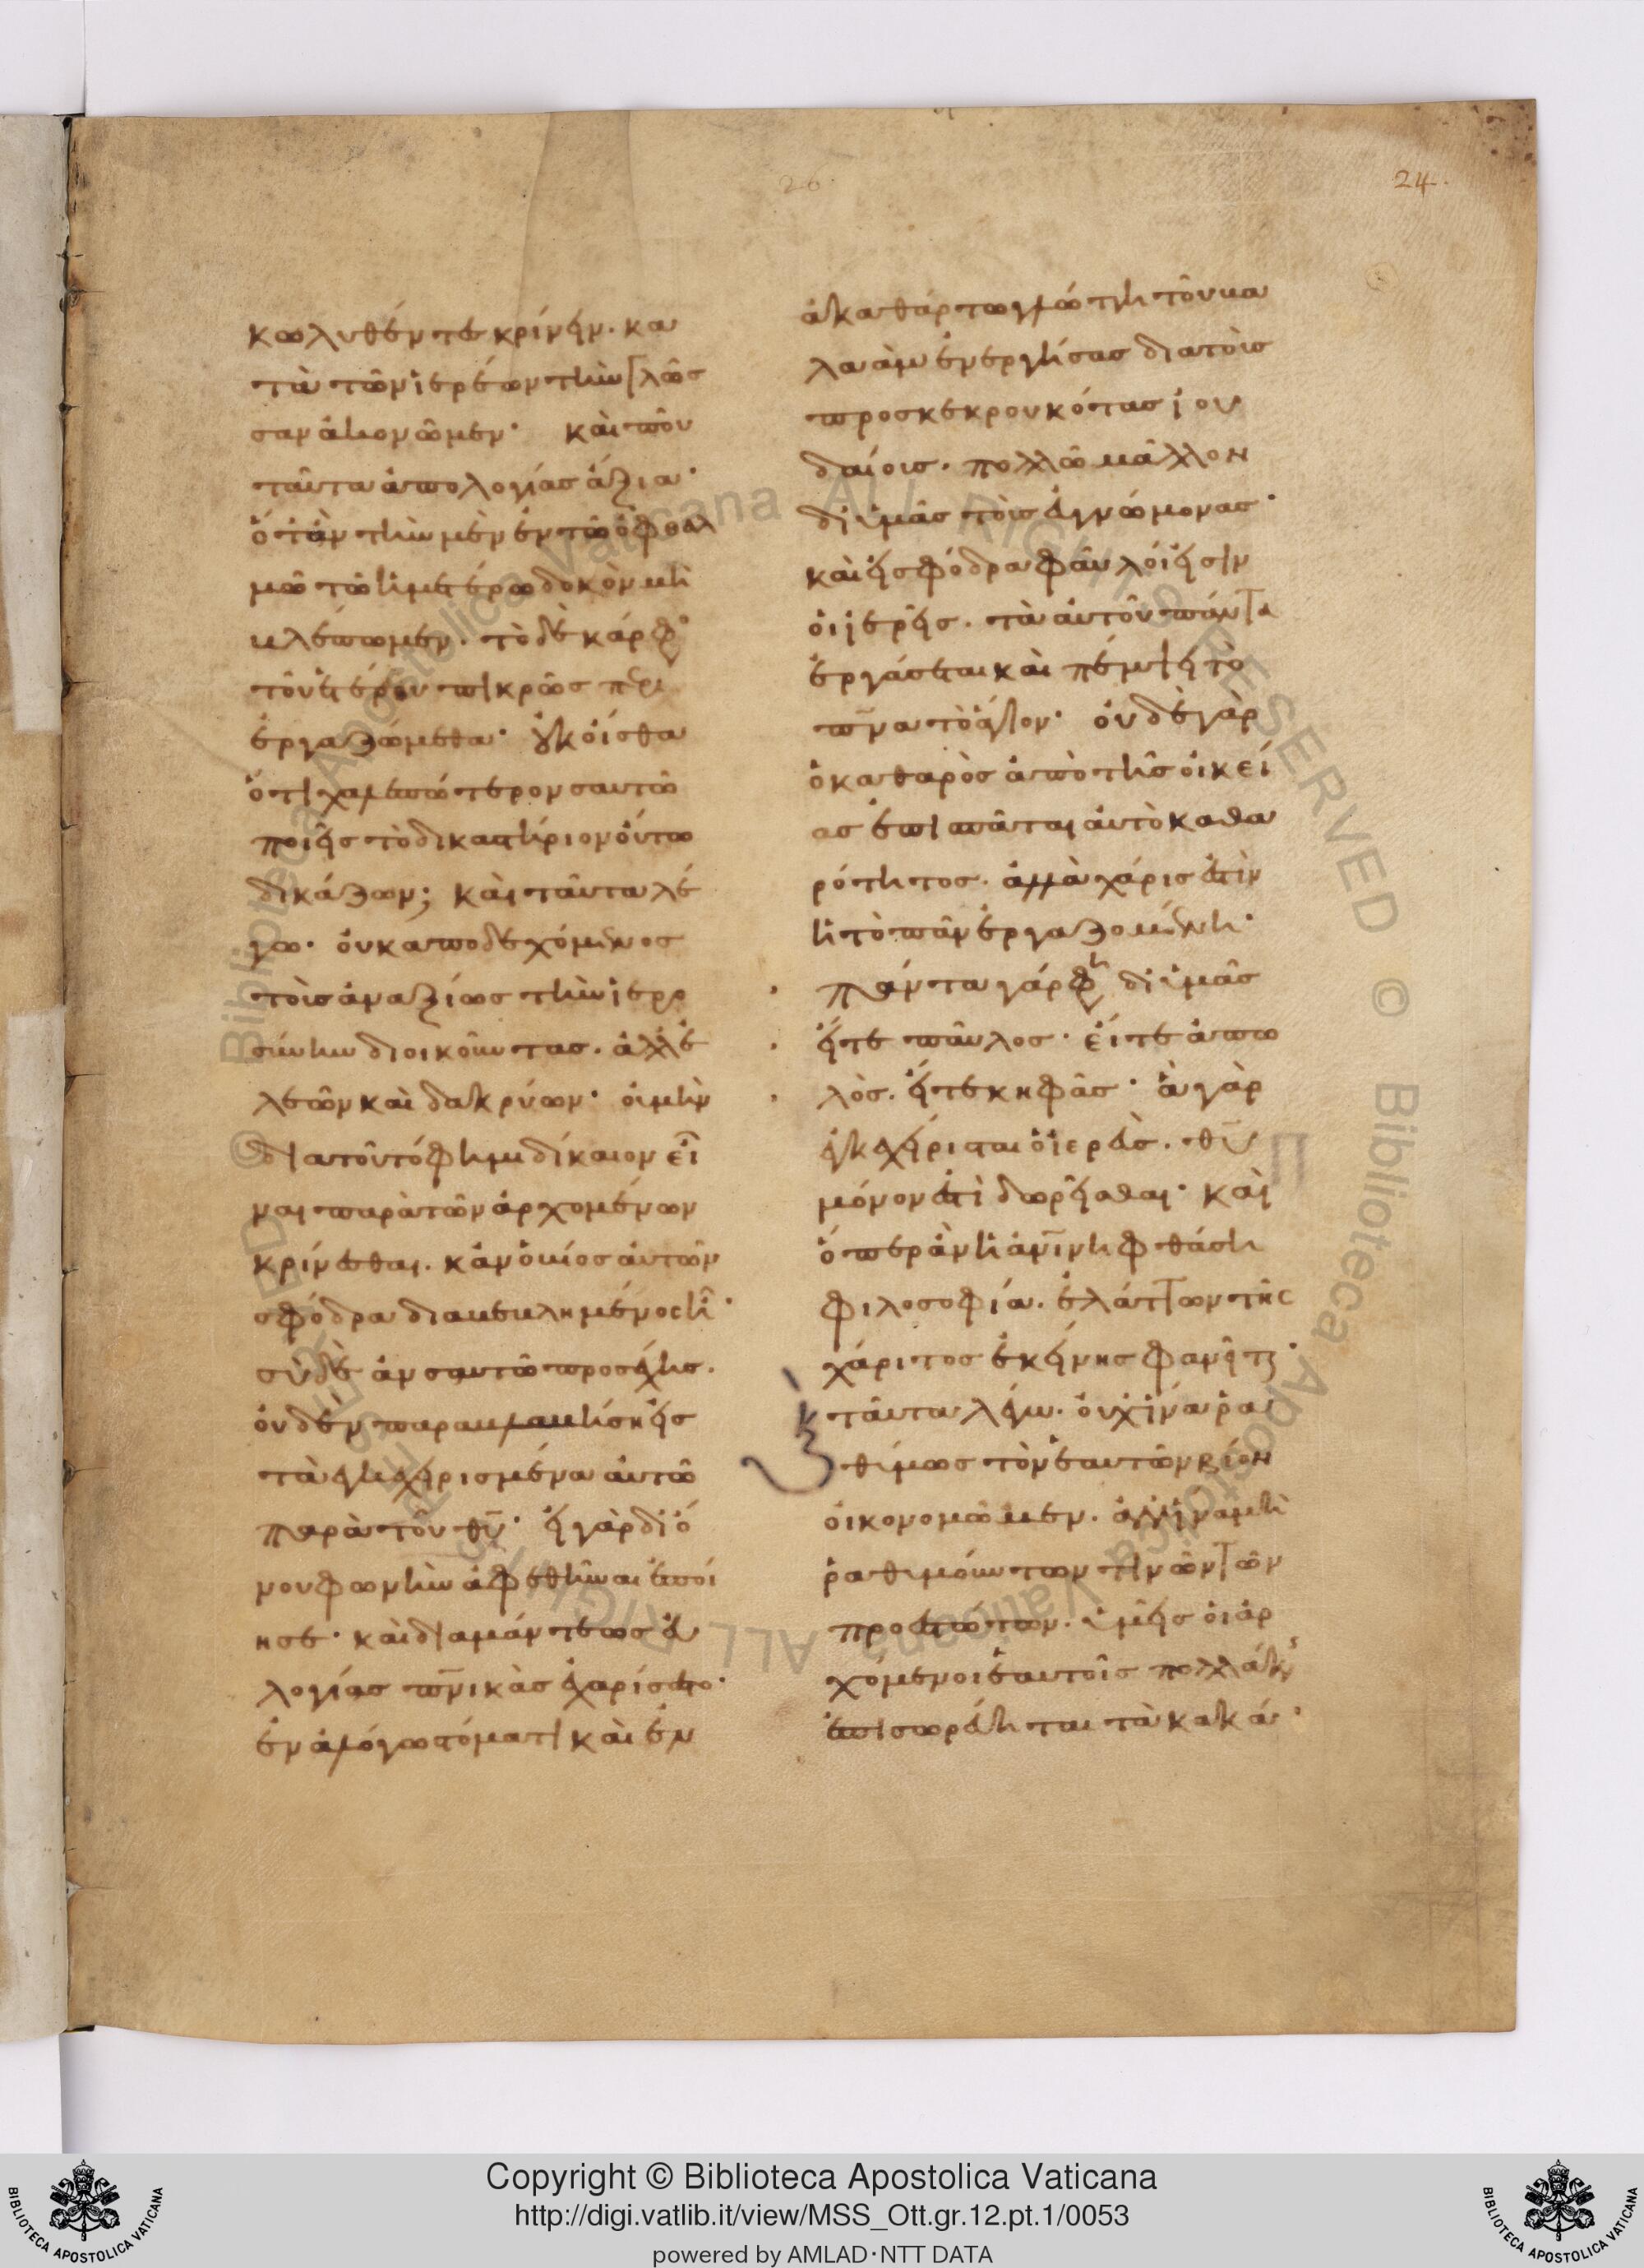 26.
24.
κωλυθέντες κρίνειν. κα
τὰ τῶν ἱερέων τὴν γλῶσ
σαν ἀκονῶμεν· καὶ ποῦ
ταῦτα ἀπολογίας ἄξια·
ὅταν τὴν μὲν ἐν τῶ ὀφθαλ
μῶ τῶ ἡμετέρω δοκὸν μὴ
βλέπωμεν. τὸ δὲ κάρφος
τοῦ ἑτέρου πικρῶς περι
εργαζώμεθα· οὐκ οἶσθα
ὅτι χαλεπώτερον σαυτῶ
ποιεῖς τὸ δικαστήριον οὕτω
δικάζων; καὶ ταῦτα λέ
γω. οὐκ ἀποδεχόμενος
τοὺς ἀναξίως τὴν ἱερω
σύνην διοικοῦντας. ἀλλ' ἐ
λεῶν καὶ δακρύων· οὐ μὴν
διατοῦτό φημι δίκαιον εἶ
ναι παρὰ τῶν ἀρχομένων
κρίνεσθαι. κἂν ὁ βίος αὐτῶν
σφόδρα διαβεβλημένος ἦ·
σὺ δὲ ἂν σαυτῶ προσέχης.
οὐδὲν παραβλαβήση εἰς
τὰ ἐγκεχειρισμένα αὐτῶ
παρὰ τοῦ θῦ· εἰ γὰρ δι' ὄ
νου φωνὴν ἀφεθῆναι ἐποί
ησε· καὶ διὰ μάντεως εὐ
λογίας πνικὰς ἐχαρίσατο·
ἐν ἀλόγω στόματι καὶ ἐν
ἀκαθάρτω γλώττη τοῦ βα
λαὰμ ἐνεργήσας διὰ τοὺς
προσκεκρουκότας ἰου
δαίους. πολλῶ μᾶλλον
δι' ὑμᾶς τοὺς εὐγνώμονας·
καὶ εἰ σφόδρα φαῦλοι εἰσὶν
οἱ ἱερεῖς. τὰ αὐτοῦ πάντα
ἐργάσεται καὶ πέμψει τὸ
πνα τὸ ἅγιον· οὐδὲ γὰρ
ὁ καθαρὸς ἀπὸ τῆς οἰκεί
ας ἐπισπᾶται αὐτὸ καθα
ρότητος. ἀλλὰ χάρις ἐστὶν
ἡ τὸ πᾶν ἐργαζομένη·
πάντα γάρ φη δι' ὑμᾶς
εἴτε παῦλος· εἴτε ἀπολ
λὸς. εἴτε κηφᾶς· ἃ γὰρ
ἐγκεχείρισται ὁ ἱερεὺς. θῦ
μόνον ἐστὶ δωρεῖσθαι· καὶ
ὅπερ ἂν ἡ ἀνίνη φθάση
φιλοσοφία. ἐλάττων τῆς
χάριτος ἐκείνης φανεῖται·
ταῦτα λέγω. οὐχ ἵνα ρα
θύμως τὸν ἑαυτῶν βίον
οἰκονομῶμεν. ἀλλ' ἵνα μὴ
ραθυμούντων τινῶν τῶν
προεστώτων. ὑμεῖς οἱ ἀρ
χόμενοι ἑαυτοῖς πολλάκις
ἐπισωρεύηται τὰ κακά·
Copyright © Biblioteca Apostolica Vaticana
http://digi.vatlib.it/view/MSS_Ott.gr.12.pt.1/0053
powered by AMLAD·NTT DATA
BIBLIOTECA APOSTOLICA VATICANA
BIBLIOTECA APOSTOLICA VATICANA